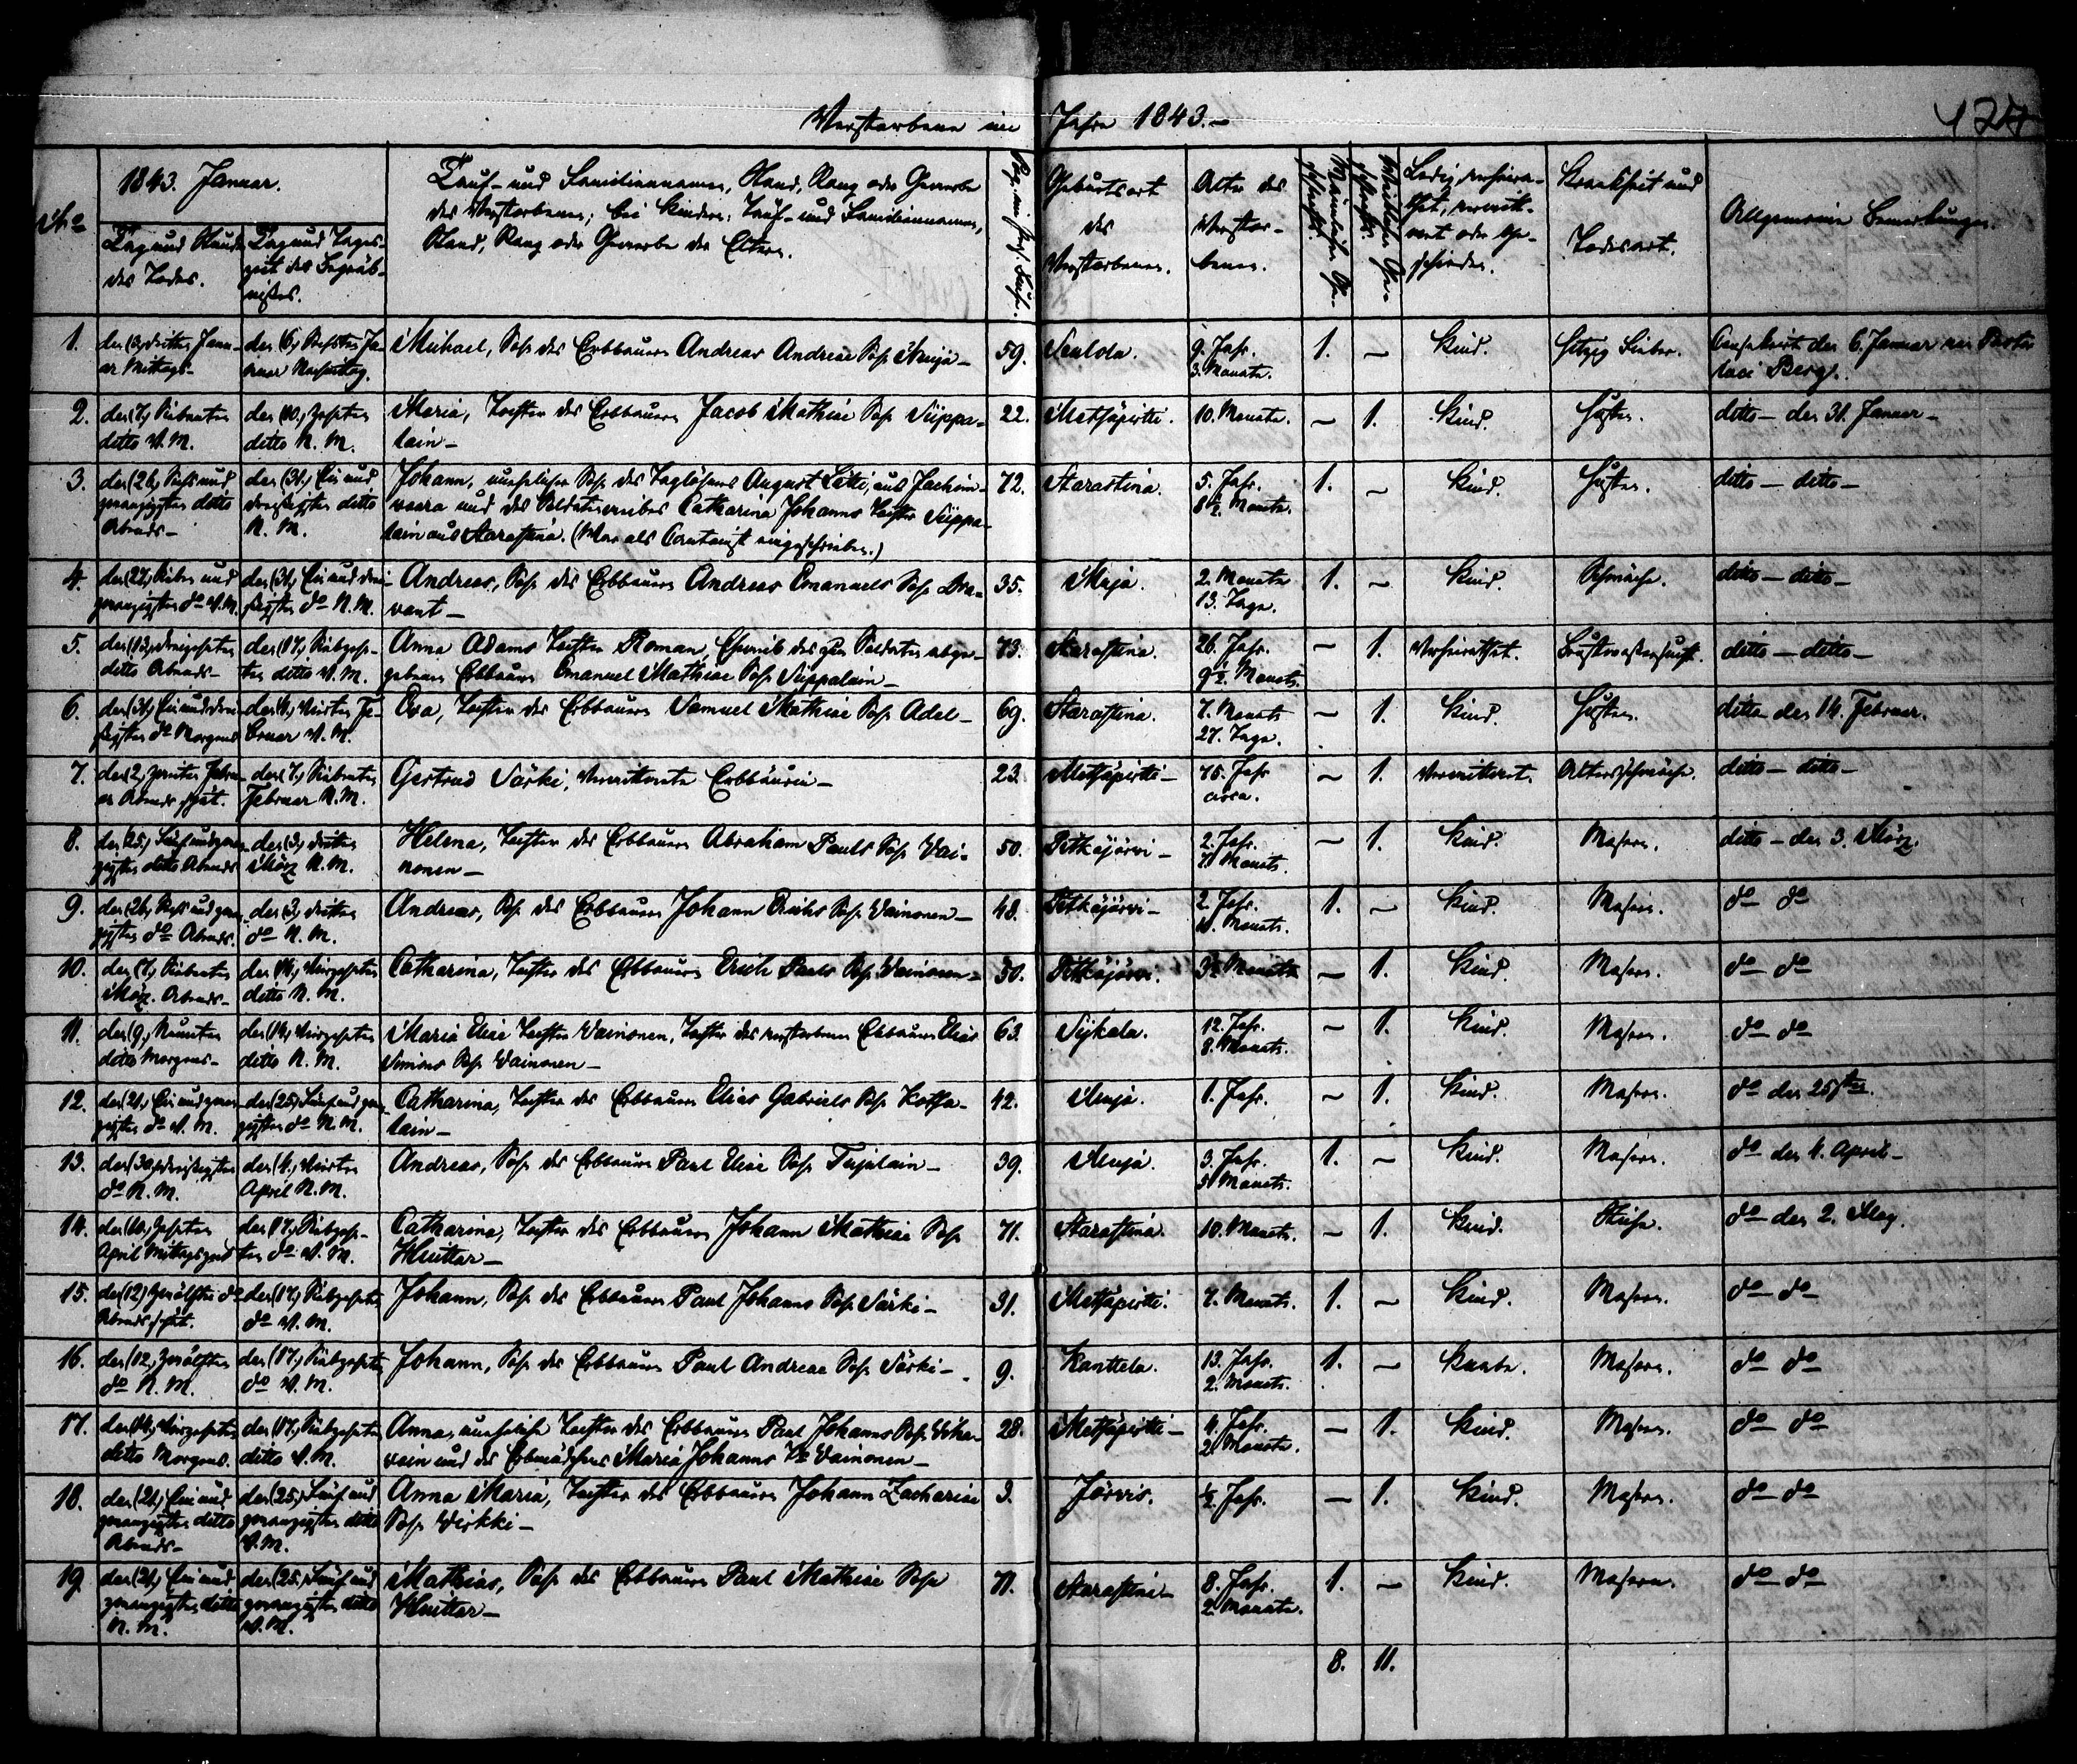 Verstorbene im Jahre 1843.-
127
No
1843. Januar.
Tag und Stunde des Todes.
Tag und Tages-
zeit des Begräb-
nisses.
Tauf- und Familiennamen, Stand, Rang oder Gewerbe
des Verstorbenen; bei Kindern: Tauf- und Familiennamen,
Stand, Rang oder Gewerbe der Eltern.
Pag. im Pers. Buch.
Geburtsort
des
Verstorbenen.
Alter des
Verstor-
benen.
Männliche Ge-
schlechts.
Weibliche Ge-
schlechts.
Ledig, verheira-
thet, verwitt-
wet oder ge-
schieden.
Krankheit und
Todesart.
Allgemeine Bemerkungen.
1. den (3,) dritten Janu-
ar Mittags-
den (6,) Sechsten Ja-
nuar Nachmittag.
Michael, Sohn des Erbbauern Andreas Andreae Sohn Muja-
59. 9. Jahr.
3. Monate.
1. - Kind. hitzig Fieber. den 6. Januar von Pastor
loci Berg.
2. den (7,) Siebenten
ditto V. M.
den (10,) Zehnten
ditto N. M.
Maria, Tochter des Erbbauern Jacob Mathiae Sohn Suppa-
lain-
22. Metsäpirtti. 10. Monate. - 1. Kind. Husten. ditto - den 31. Januar-
3. den (26,) Sechs und
zwanzigsten ditto
Abends-
den (31,) Ein und
dreißigsten ditto
N. M.
Johann, unehelicher Sohn des Taglöhners August Lätti, aus Jachim-
waara und des Soldatenweibes Catharina Johanns Tochter Suppa-
lain aus Starastina. (War als Cantonist eingeschrieben.)
72. Starastina. 5. Jahr.
8½. Monate.
1. - Kind. Husten. ditto - ditto-
4. den (27,) Sieben und
zwanzigsten do V. M.
den (31,) Ein und drei-
ßigsten do N. M.
Andreas, Sohn des Erbbauern Andreas Emanuels Sohn Sa-
vant-
35. Muja. 2. Monate
13. Tage.
1. - Kind. Schwäche. ditto - ditto-
5. den (13,) dreizehnten
ditto Abends-
den (17,) Siebzehn-
ten ditto V. M.
Anna Adams Tochter Roman, Eheweib des zum Soldaten abge-
gebenen Erbbauern Emanuel Mathiae Sohn Suppalain-
73. Starastina. 26. Jahr.
9½. Monate.
- 1. Verheirathet. Brustwassersucht. ditto - ditto-
6. den (31,) Ein und drei-
ßigsten do Morgens
den (4,) Vierten Fe-
bruar V. M.
Eva, Tochter des Erbbauern Samuel Mathiae Sohn Adel-
69. Starastina. 7. Monate
27. Tage.
- 1. Kind. Husten. ditto den 14. Februar.
7. den (2,) zweiten Febru-
ar Abends spät.
den (7,) Siebenten
Februar N. M.
Gertrud Särki, Verwittwete Erbbäurin-
23. Metsäpirtti- 75. Jahr
circa.
- 1. Verwittwet. Altersschwäche. ditto - ditto-
8. den (25,) Fünf und zwan-
zigsten ditto Abends
den (3,) dritten
März N. M.
Helena, Tochter des Erbbauern Abraham Pauls Sohn Vai-
nonen-
50. Pitkäjärvi- 2. Jahr.
7. Monate.
- 1. Kind. Masern. ditto - den 3. März.
9. den (26,) Sechs und zwan-
zigsten do Abends.
den (3,) dritten
do N. M.
Andreas, Sohn des Erbbauern Johann Erichs Sohn Vainonen-
48. Pitkäjärvi- 2. Jahr.
11. Monate.
1. - Kind. Masern. do do
10. den (7,) Siebenten
März. Abends-
den (14,) Vierzehnten
ditto N. M.
Catharina, Tochter des Erbbauern Erich Pauls Sohn Vainonen-
50. Pitkäjärvi. 3½ Monate - 1. Kind. Masern. do do
11. den (9,) Neunten
ditto Morgens-
den (14,) Vierzehnten
ditto N. M.
Maria Eliae Tochter Vainonen, Tochter des verstorbenen Erbbauern Elias
Simons Sohn Vainonen-
63. Sijkala. 12. Jahr.
8. Monate.
- 1. Kind. Masern. do do
12. den (21,) Ein und zwan-
zigsten do V. M.
den (25,) Fünf und zwan-
zigsten do N. M.
Catharina, Tochter des Erbbauern Elias Gabriels Sohn Kossa-
lain-
42. Muja. 1. Jahr. - 1. Kind. Masern. do den 25sten.
13. den (30,) dreißigsten
do N. M.
den (4,) Vierten
April N. M.
Andreas, Sohn des Erbbauern Paul Eliae Sohn Tujulain-
39. Muja. 3. Jahr.
5. Monate.
1. - Kind. Masern. do den 4. April-
14. den (10,) Zehnten
April Mittagszeit
den (17,) Siebzehn-
ten do V. M.
Catharina, Tochter des Erbbauern Johann Mathiae Sohn
Huittar-
71. Starastina. 10. Monate. - 1. Kind. do den 2. May.
15. den (12,) Zwölften do
Abends spät.
den (17,) Siebzehnten
do V. M.
Johann, Sohn des Erbbauern Paul Johanns Sohn Särki-
31. Metsäpirtti. 7. Monate. 1. - Kind. Masern. do do
16. den (12,) Zwölften
do N. M.
den (17,) Siebzehnten
do V. M.
Johann, Sohn des Erbbauern Paul Andreae Sohn Särki-
9. Kanttela. 13. Jahr.
2. Monate.
1. - Knabe. Masern. do do
17. den (14,) Vierzehnten
ditto Morgens.
den (17,) Siebzehnten
ditto V. M.
Anna, uneheliche Tochter des Erbbauern Paul Johanns Sohn
und des Erbmädchens Maria Johanns Tr Vainonen-
28. Metsäpirtti- 4. Jahr.
2. Monate.
- 1. Kind. Masern. do do
18. den (21,) Ein und
zwanzigsten ditto
Abends-
den (25,) Fünf und
zwanzigsten ditto
V. M.
Anna Maria, Tochter des Erbbauern Johann Zachariae
Sohn Virkki-
3. Järvis. ½. Jahr. - 1. Kind. Masern. do do
19. den (21,) Ein und
zwanzigsten ditto
N. M.
den (25,) Fünf und
zwanzigsten ditto
V. M.
Mathias, Sohn des Erbbauern Paul Mathiae Sohn
Huittar-
71. Starastina- 8. Jahr.
2. Monate.
1. - Kind. Masern. do do
8. 11.